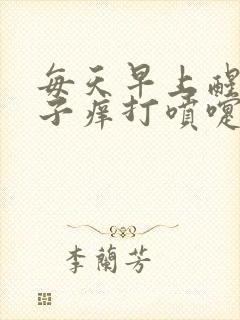 每天早上醒
子痒打喷嚏
李蘭芳